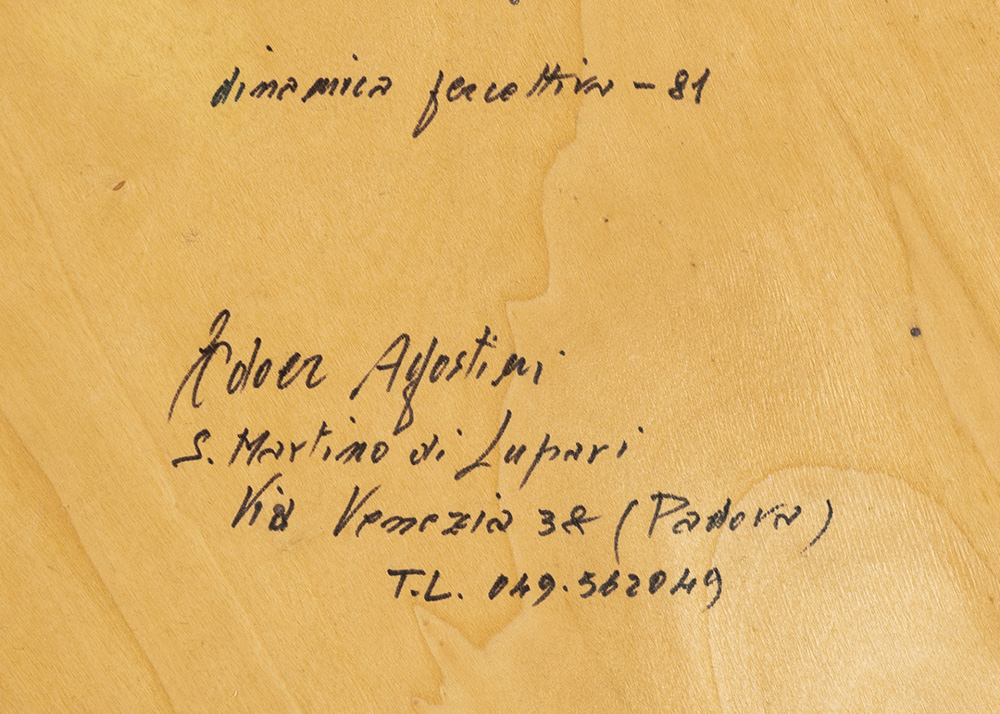 dinamica percettiva - 81
Edoer Agostini
S. Martino di Lupari
Via Venezia 38 (Padova)
T.L. 049.562049